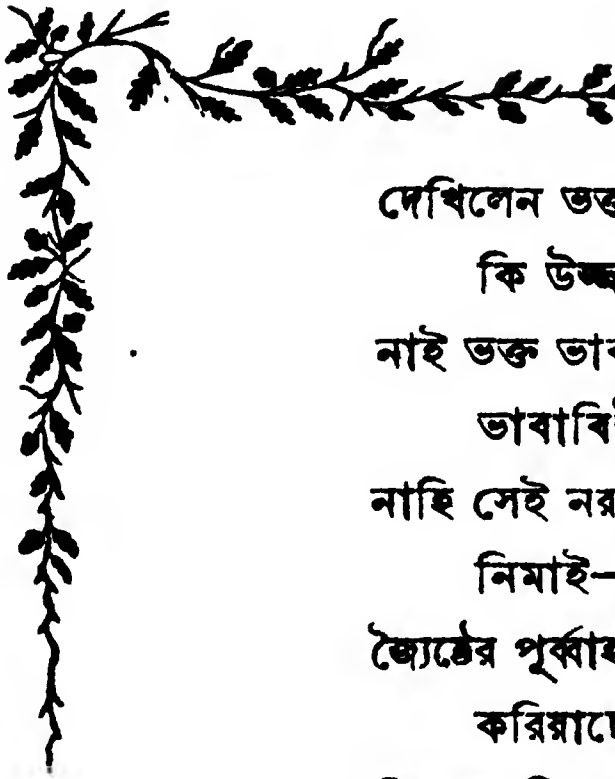 দেখিলেন ভক্ত
কি উজ্জ্ব
নাই ভক্ত ভাব
ভাবাবি
নাহি সেই নর
নিমাই—
জ্যৈষ্ঠের পূর্ব্বাহ
করিয়াছে